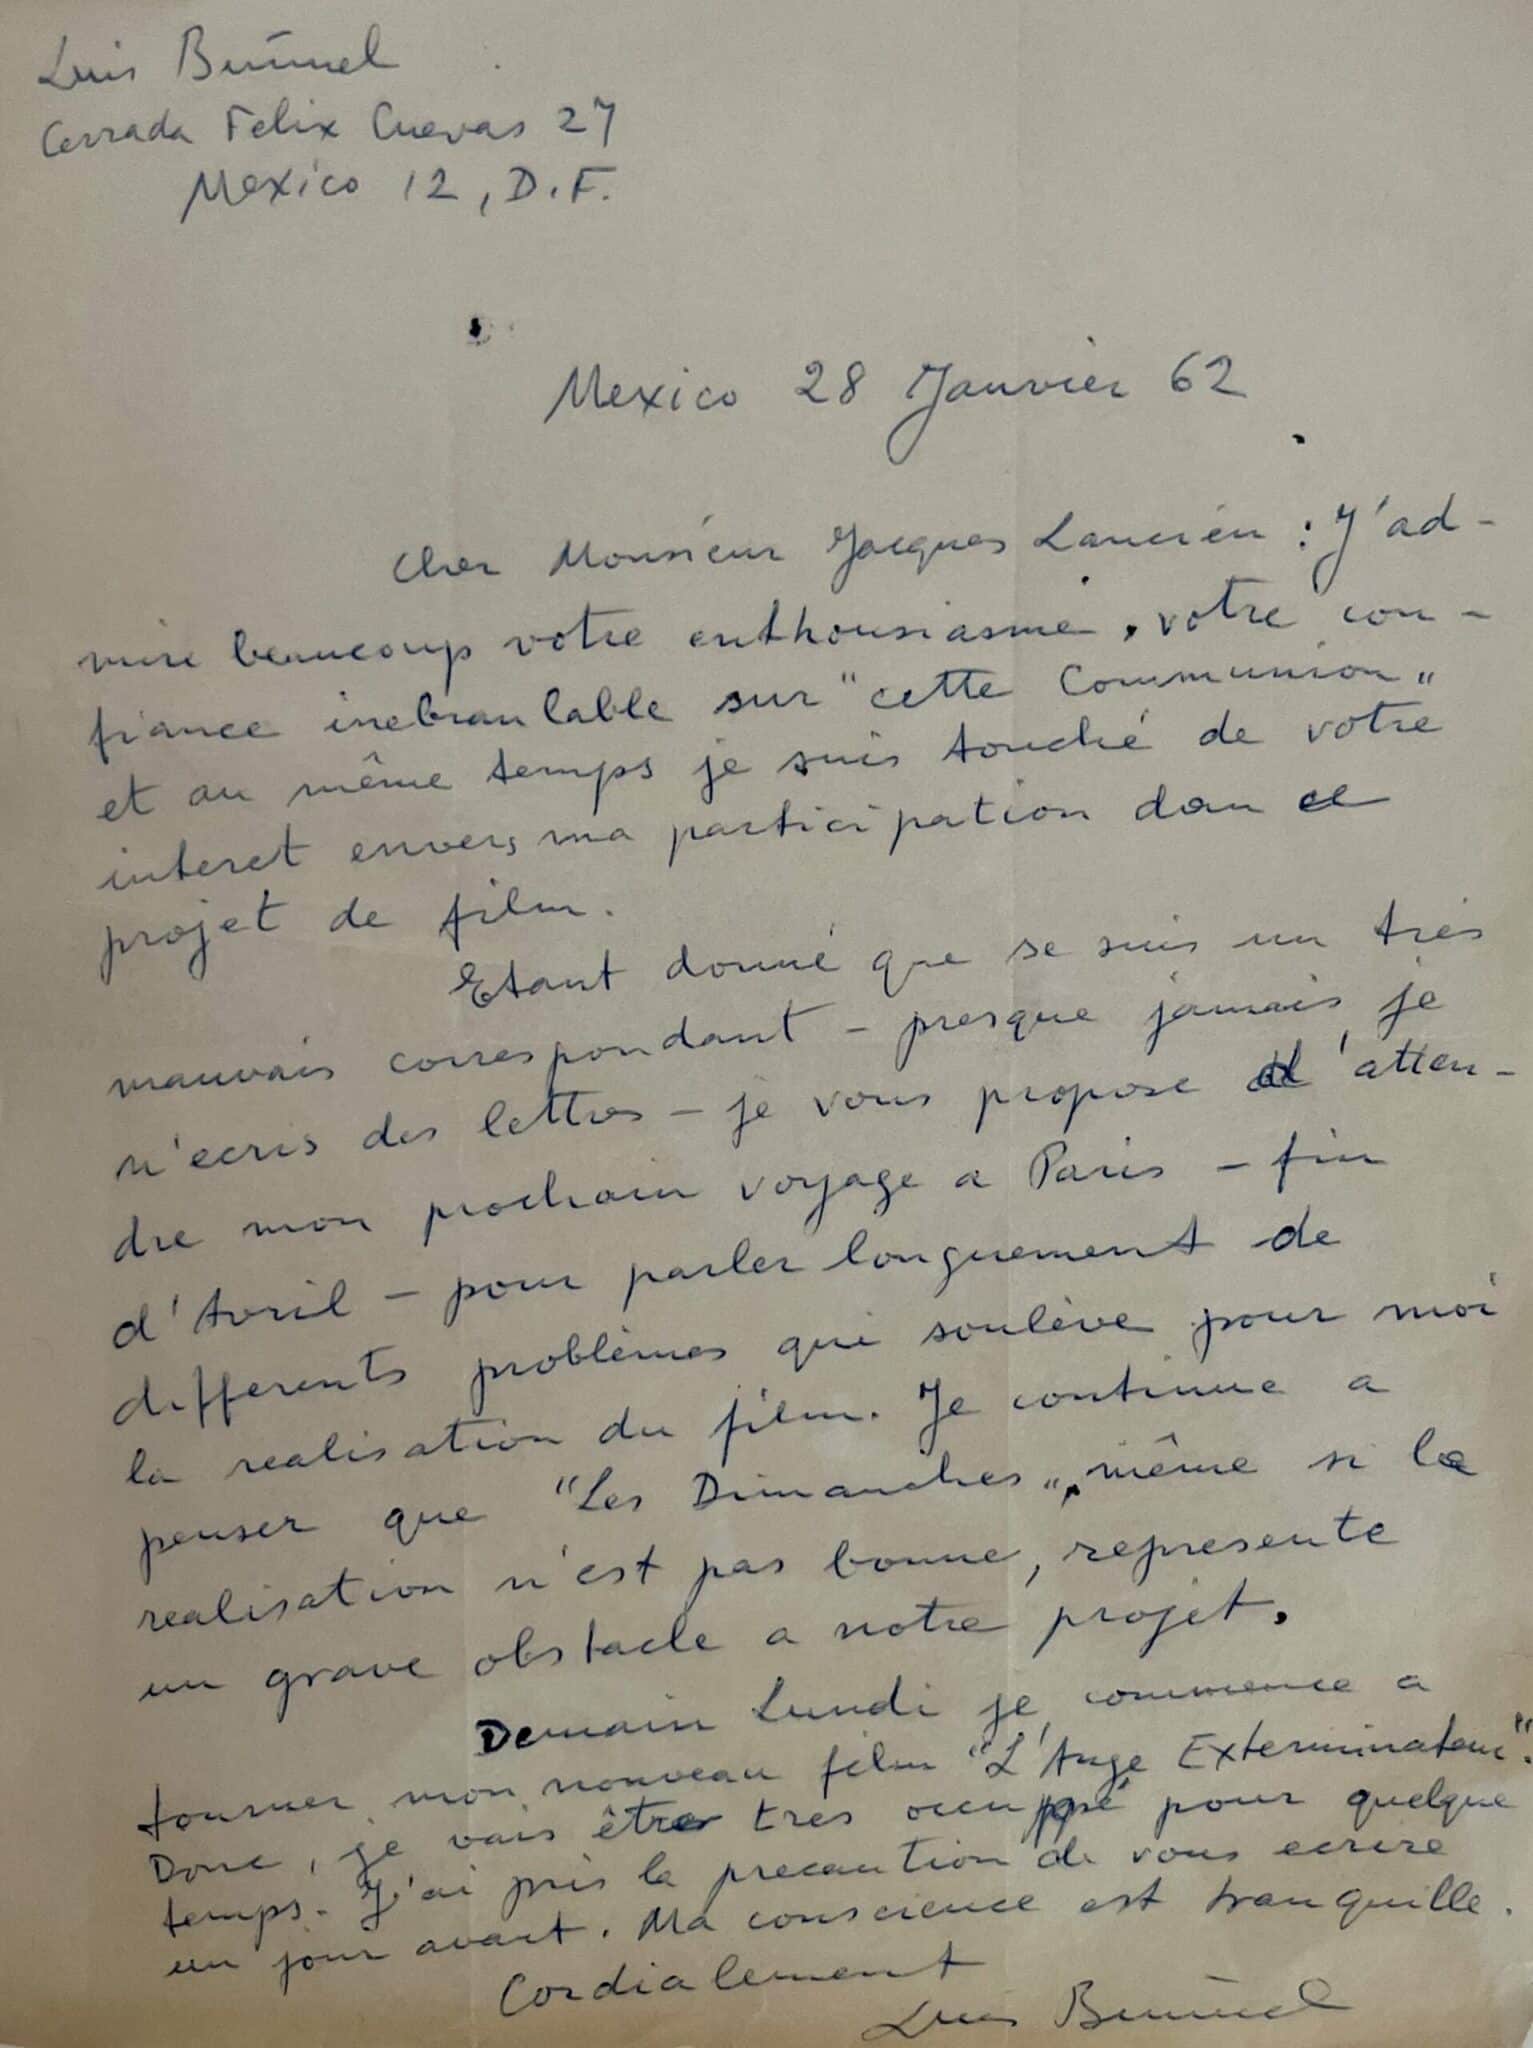 Luis Buñuel
Cerrada Felix Cuevas 27
Mexico 12, D.F.
Mexico 28 Janvier 62
Cher Monsieur Jacques Lancien : J'ad-
mire beaucoup votre enthousiasme, votre con-
fiance inebranlable sur "cette Communion"
et au même temps je suis touché de votre
interet envers ma participation dan ce
projet de film.
Etant donné que je suis un très
mauvais correspondant - presque jamais je
n'ecris des lettres - je vous propose d'atten-
dre mon prochain voyage a Paris - fin
d'Avril - pour parler longuement de
differents problèmes qui soulève pour moi
la realisation du film. Je continue a
penser que "Les Dimanches", même si la
realisation n'est pas bonne, represente
un grave obstacle a notre projet.
Demain Lundi je commence a
tourner mon nouveau film "L'Ange Exterminateur".
Donc, je vais être tres occuppé pour quelque
temps. J'ai pris la precaution de vous ecrire
un jour avant. Ma conscience est tranquille.
Cordialement
Luis Buñuel